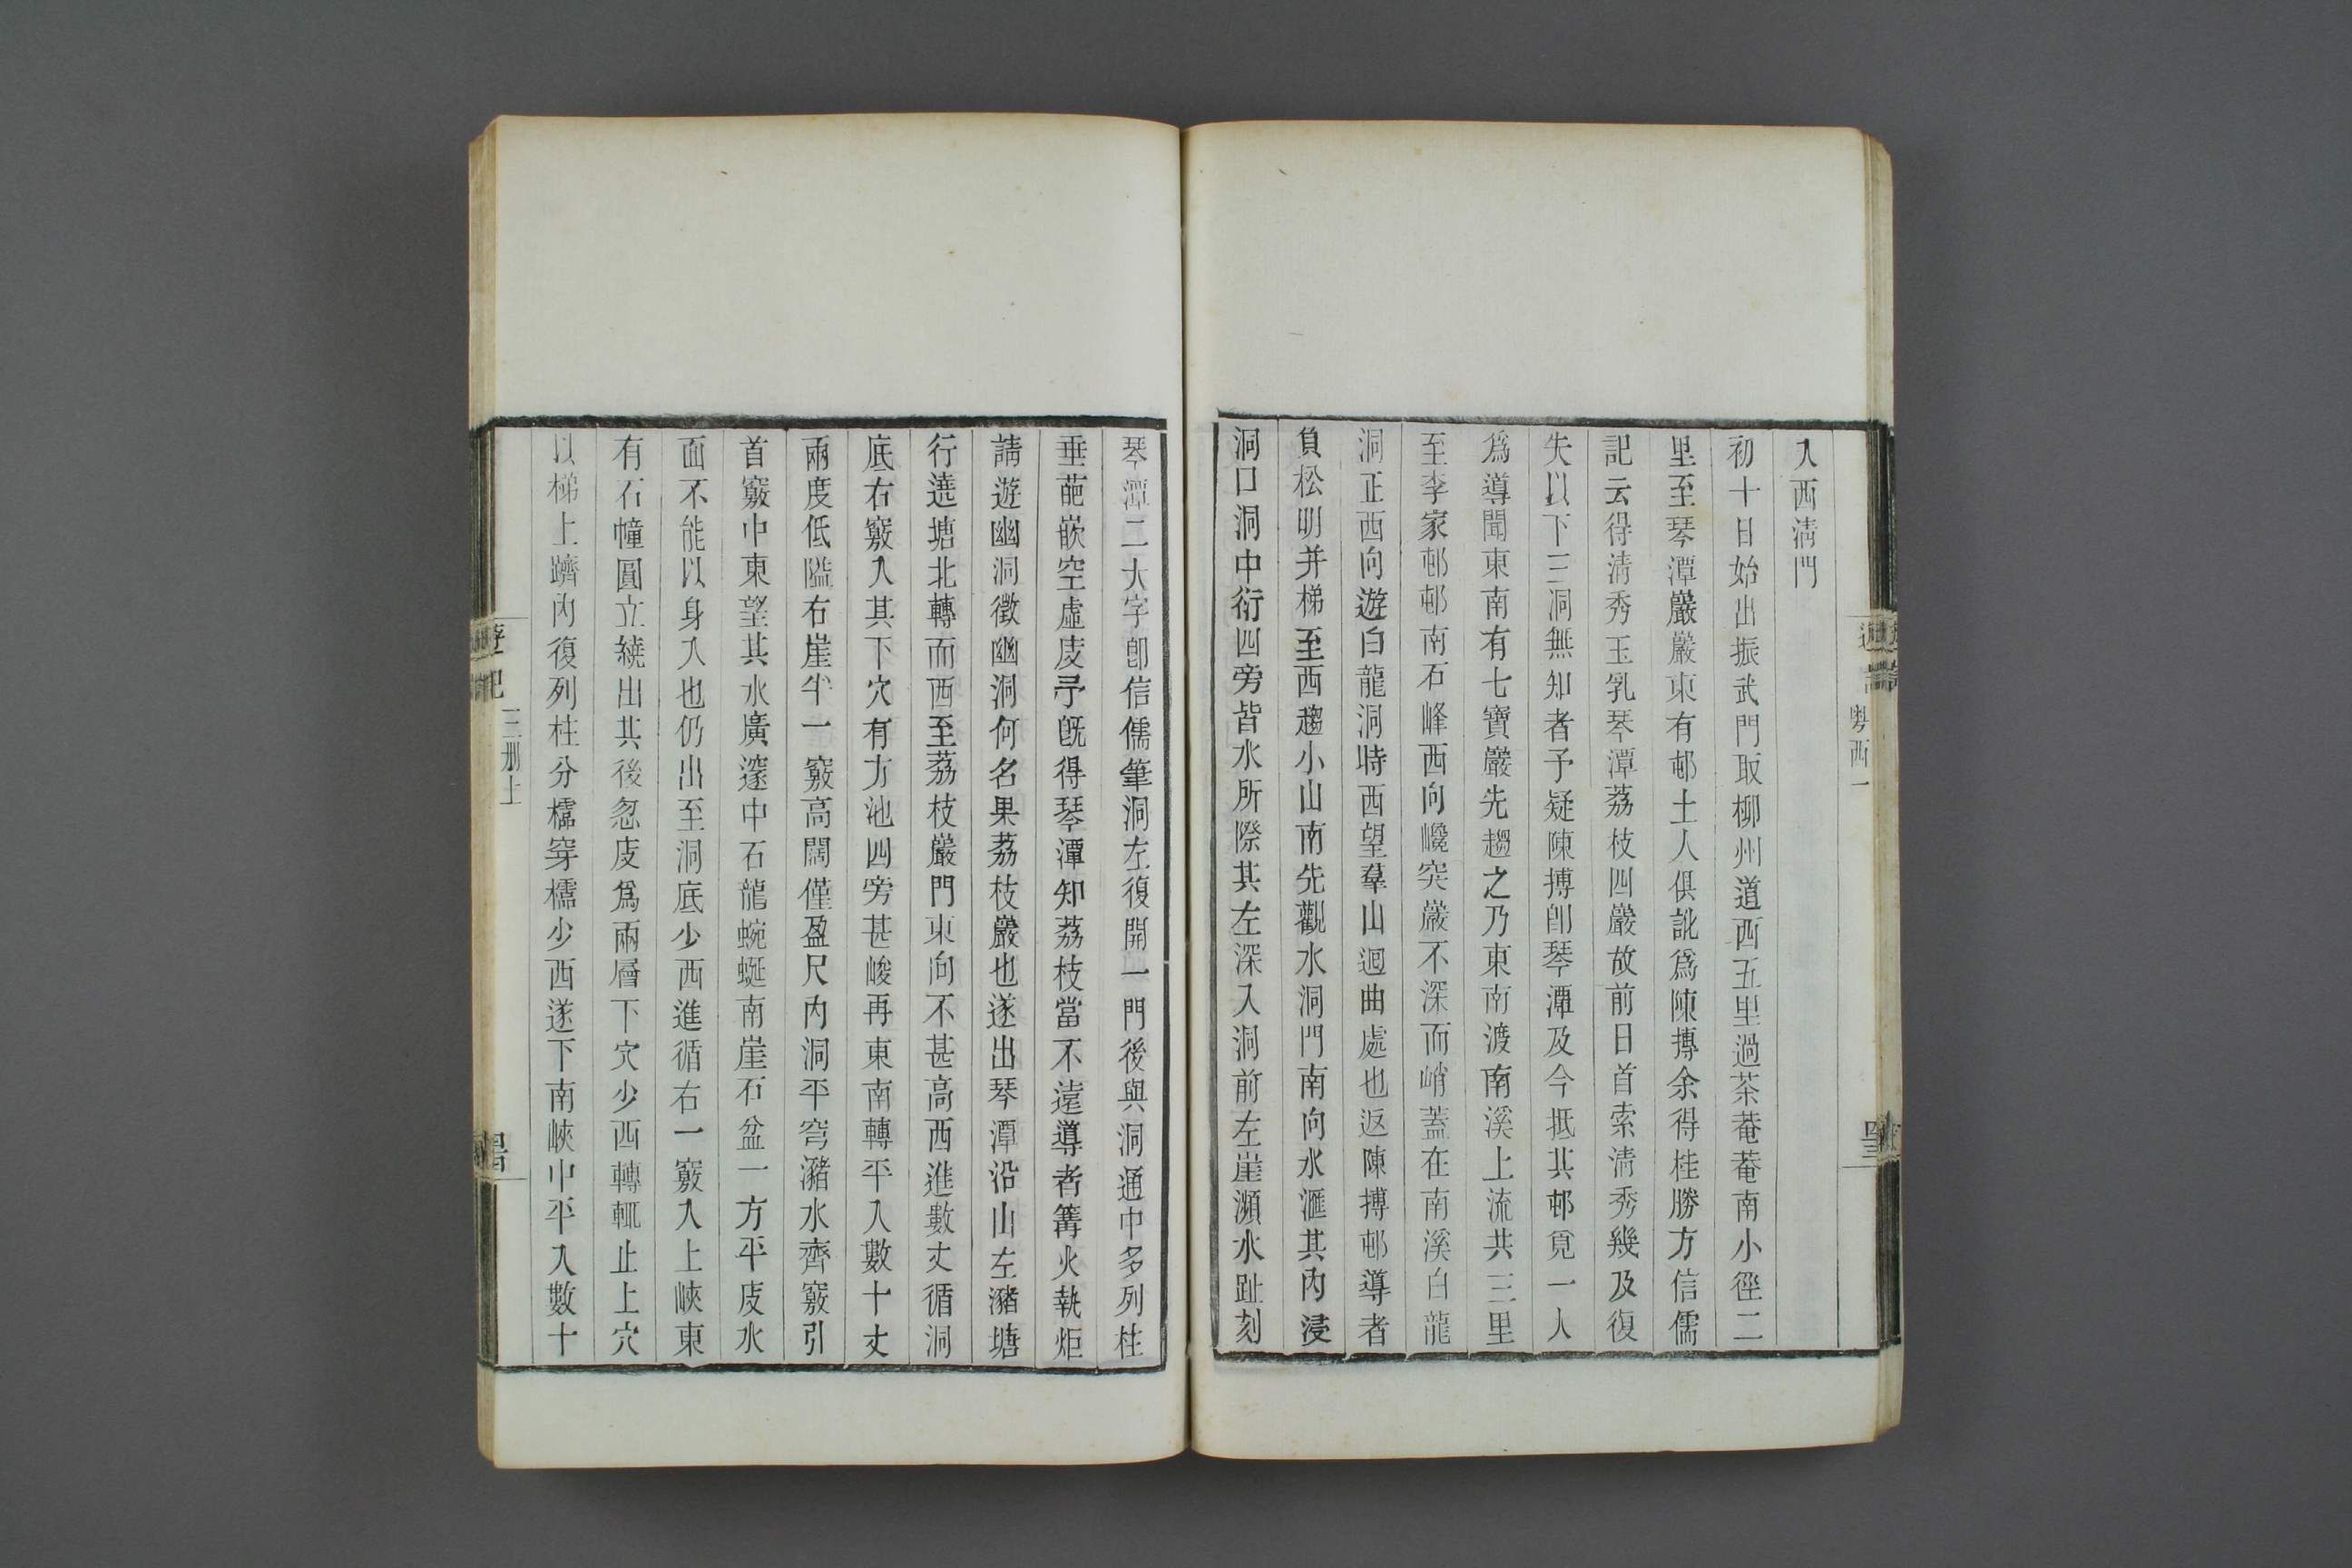 粤西一
入西清門
初十日始出振武門取柳州道西五里過茶菴菴南小徑二
里至琴潭巖巖東有邨土人俱訛爲陳摶余得桂勝方信儒
記云得清秀玉乳琴潭荔枝四巖故前日首索清秀幾及復
失以下三洞無知者予疑陳摶卽琴潭及今抵其邨覓一人
爲導聞東南有七寶巖先趨之乃東南渡南溪上流共三里
至李家邨邨南石峰西向巉突巖不深而峭蓋在南溪白龍
洞正西向遊白龍洞時西望羣山迴曲處也返陳摶邨導者
負松明并梯至西趨小山南先觀水洞門南向水滙其內浸
洞口洞中衍四旁皆水所際其左深入洞前左崖瀕水趾刻
琴潭二大字卽信儒筆洞左復開一門後與洞通中多列柱
垂葩嵌空虛庋予旣得琴潭知荔枝當不遠導者篝火執炬
請遊幽洞徵幽洞何名果荔枝巖也遂出琴潭沿山左瀦塘
行遶塘北轉而西至荔枝巖門東向不甚高西進數丈循洞
底右竅入其下穴有方池四旁甚峻再東南轉平入數十丈
兩度低隘右崖半一竅高闊僅盈尺內洞平穹瀦水齊竅引
首竅中東望其水廣邃中石龍蜿蜒南崖石盆一方平庋水
面不能以身入也仍出至洞底少西進循右一竅入上峽東
有石幢圓立繞出其後忽庋爲兩層下穴少西轉輒止上穴
以梯上躋內復列柱分櫺穿櫺少西遂下南峽中平入數十
遊記
三删上